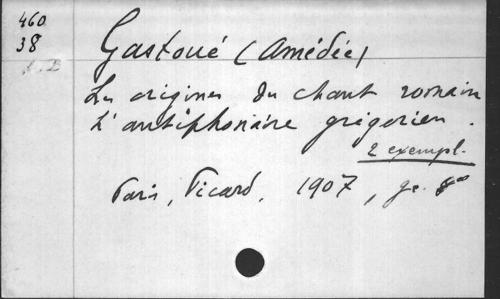 460
38
Gastoué (Amédée)
Les origines du chant romain
L'antiphonaire grégorien.
2 exempl.
Paris, Picard, 1907, gr. 8°